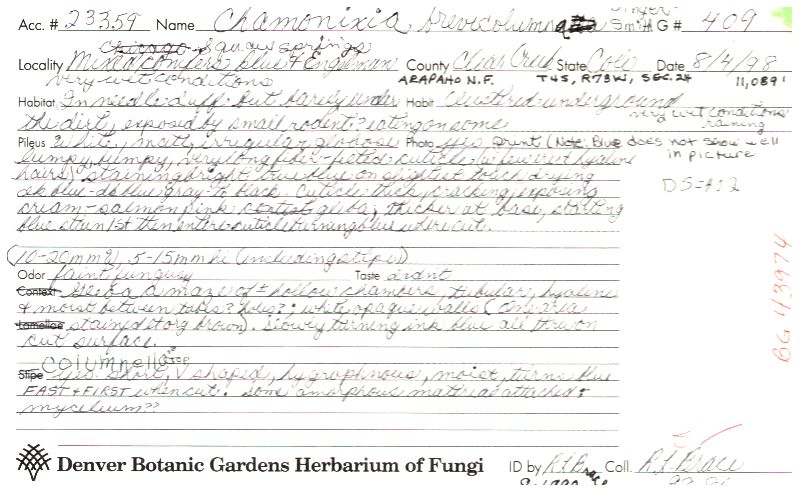 Acc. # 23359 Name Chamonixia brevicolumna Singer & Smith G # 409
Chicago Squaw springs
Locality Mixed conifers blue & Engelman County Clear Creek State Colo Date 8/4/98
very wet conditions ARAPAHO N.F. T4S, R73W, SEC. 24 11,089'
Habitat In needle duff but barely under Habit Clustered underground
the dirt, exposed by small rodent? eating on some very wet conditions raining
Pileus White, matt, irregular globose Photo yes print (Note: Blue does not show well in picture
lumpy, bumpy, very long fiber-felted cuticle (a few erect hyaline
hairs) staining bright true blue on slightest touch drying
dk blue - dk blue gray to black. Cuticle thick, cracking, exposing DS-#12
cream-salmon pink gleba; thicker at base, starting
blue stain 1st then entire cuticle turning blue where cut.
(10-20mm), 5-15mm hi (including stipe)
Odor faint fungusy Taste didnt
Context Gleba a maze of ± hollow chambers, tubular, hyaline
& moist between tubes? ; white opaque walls (
Lamellae stained to rg brown). Slowly turning ink blue all thru on
cut surface.
Columnella
Stipe yes short, V shaped, hygrophnous, moist, turns blue
FAST & FIRST when cut. Some amorphous material attached ±
mycelium??
BG 43974
Denver Botanic Gardens Herbarium of Fungi ID by RL Brace Coll. RL Brace